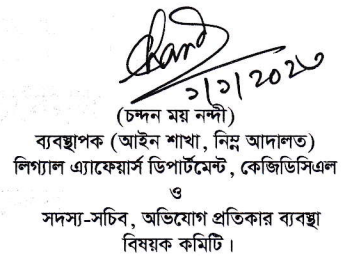 Chand
১/১/2023
(চন্দন ময় নন্দী)
ব্যবস্থাপক (আইন শাখা, নিম্ন আদালত)
লিগ্যাল এ্যাফেয়ার্স ডিপার্টমেন্ট, কেজিডিসিএল
ও
সদস্য-সচিব, অভিযোগ প্রতিকার ব্যবস্থা
বিষয়ক কমিটি।